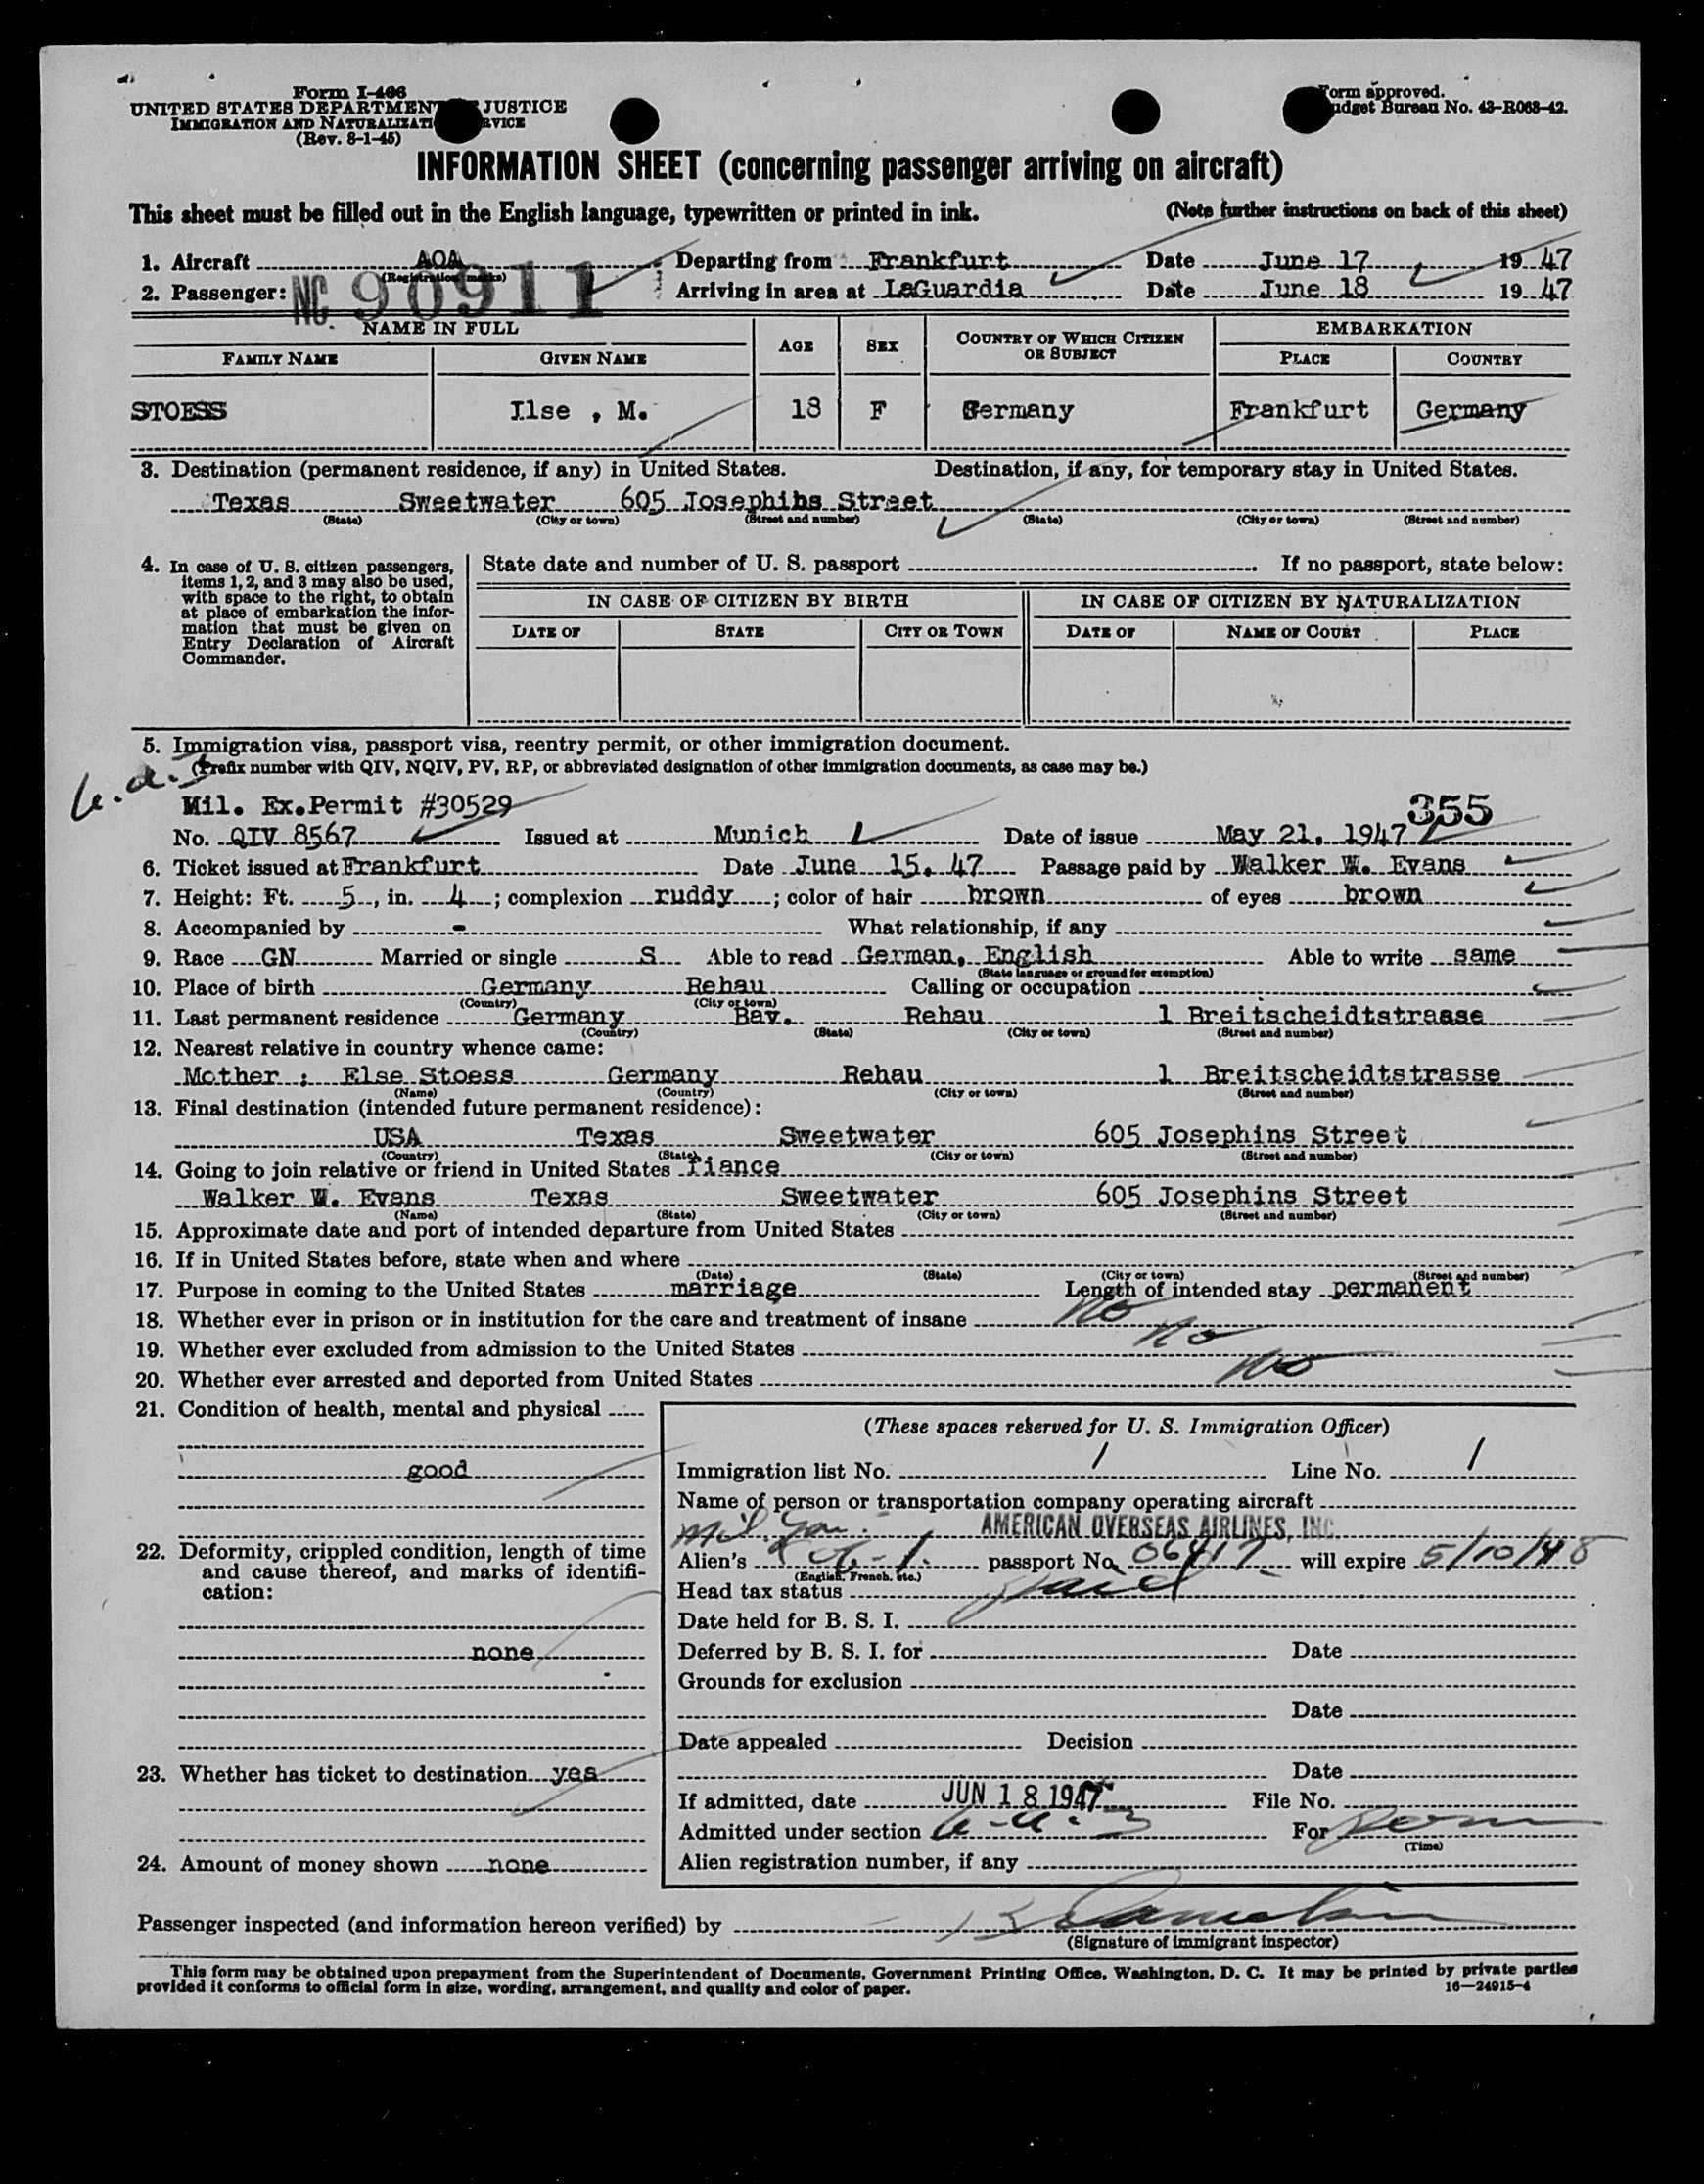 Form I-466
UNITED STATES DEPARTMENT JUSTICE
IMMIGRATION AND NATURALIZATI RVICE
(Rev. 8-1-45)
Form approved.
udget Bureau No. 43-R063-42.
INFORMATION SHEET (concerning passenger arriving on aircraft)
This sheet must be filled out in the English language, typewritten or printed in ink. (Note further instructions on back of this sheet)
1. Aircraft AOA Departing from Frankfurt Date June 17 1947
(Registration marks)
2. Passenger: NC 90911 Arriving in area at LaGuardia Date June 18 1947
NAME IN FULL AGE SEX COUNTRY OF WHICH CITIZEN OR SUBJECT EMBARKATION
FAMILY NAME GIVEN NAME PLACE COUNTRY
STOESS Ilse , M. 18 F Germany Frankfurt Germany
3. Destination (permanent residence, if any) in United States. Destination, if any, for temporary stay in United States.
Texas Sweetwater 605 Josephihs Street
(State) (City or town) (Street and number) (State) (City or town) (Street and number)
4. In case of U. S. citizen passengers, items 1, 2, and 3 may also be used, with space to the right, to obtain at place of embarkation the information that must be given on Entry Declaration of Aircraft Commander.
State date and number of U. S. passport If no passport, state below:
IN CASE OF CITIZEN BY BIRTH IN CASE OF CITIZEN BY NATURALIZATION
DATE OF STATE CITY OR TOWN DATE OF NAME OF COURT PLACE
5. Immigration visa, passport visa, reentry permit, or other immigration document.
(Prefix number with QIV, NQIV, PV, RP, or abbreviated designation of other immigration documents, as case may be.)
Mil. Ex.Permit #30529 355
No. QIV 8567 Issued at Munich Date of issue May 21, 1947
6. Ticket issued at Frankfurt Date June 15. 47 Passage paid by Walker W. Evans
7. Height: Ft. 5, in. 4; complexion ruddy; color of hair brown of eyes brown
8. Accompanied by - What relationship, if any
9. Race GN Married or single S Able to read German, English Able to write same
(State language or ground for exemption)
10. Place of birth Germany Rehau Calling or occupation
(Country) (City or town)
11. Last permanent residence Germany Bav. Rehau 1 Breitscheidtstrasse
(Country) (State) (City or town) (Street and number)
12. Nearest relative in country whence came:
Mother : Else Stoess Germany Rehau 1 Breitscheidtstrasse
(Name) (Country) (City or town) (Street and number)
13. Final destination (intended future permanent residence):
USA Texas Sweetwater 605 Josephins Street
(Country) (State) (City or town) (Street and number)
14. Going to join relative or friend in United States fiance
Walker W. Evans Texas Sweetwater 605 Josephins Street
(Name) (State) (City or town) (Street and number)
15. Approximate date and port of intended departure from United States
16. If in United States before, state when and where
(Date) (State) (City or town) (Street and number)
17. Purpose in coming to the United States marriage Length of intended stay permanent
18. Whether ever in prison or in institution for the care and treatment of insane No
19. Whether ever excluded from admission to the United States No
20. Whether ever arrested and deported from United States No
21. Condition of health, mental and physical
good
22. Deformity, crippled condition, length of time and cause thereof, and marks of identification:
none
23. Whether has ticket to destination yes
24. Amount of money shown none
(These spaces reserved for U. S. Immigration Officer)
Immigration list No. 1 Line No. 1
Name of person or transportation company operating aircraft
AMERICAN OVERSEAS AIRLINES, INC.
Alien's passport No. 06417 will expire 5/10/48
(English, French, etc.)
Head tax status Paid
Date held for B. S. I.
Deferred by B. S. I. for Date
Grounds for exclusion
Date
Date appealed Decision
Date
If admitted, date JUN 18 1947 File No.
Admitted under section For Perm
(Time)
Alien registration number, if any
Passenger inspected (and information hereon verified) by
(Signature of immigrant inspector)
This form may be obtained upon prepayment from the Superintendent of Documents, Government Printing Office, Washington, D. C. It may be printed by private parties
provided it conforms to official form in size, wording, arrangement, and quality and color of paper. 16—24915-4